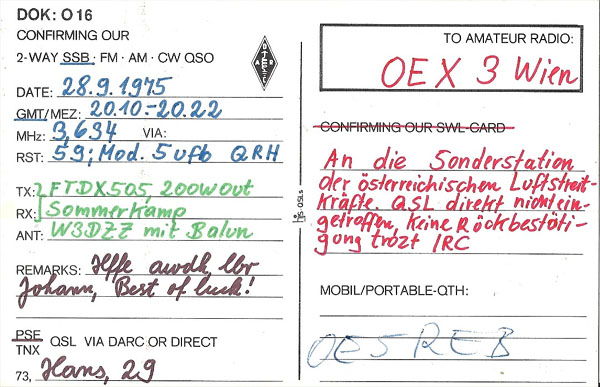 DOK: O 16
CONFIRMING OUR
2-WAY SSB · FM · AM · CW QSO
DATE: 28.9.1975
GMT/MEZ: 20.10-20.22
MHz: 3,634 VIA:
RST: 59; Mod. 5 ufb QRH
TX: FTDX505, 200W out
RX: Sommerkamp
ANT: W3DZZ mit Balun
REMARKS: Hffe awdh, lbr
Johann, Best of luck!
PSE
TNX QSL VIA DARC OR DIRECT
73, Hans, 29
DARC
hjs QSLs
TO AMATEUR RADIO:
OEX 3 Wien
CONFIRMING OUR SWL-CARD
An die Sonderstation
der österreichischen Luftstreit-
kräfte. QSL direkt nicht ein-
getroffen, keine Rückbestäti-
gung trozt IRC
MOBIL/PORTABLE-QTH:
OE5REB